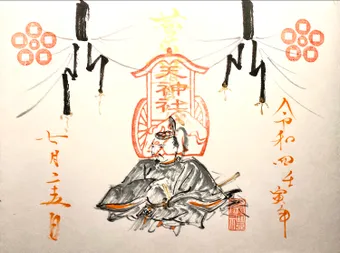 令和四壬寅年
天神社
七月二五日